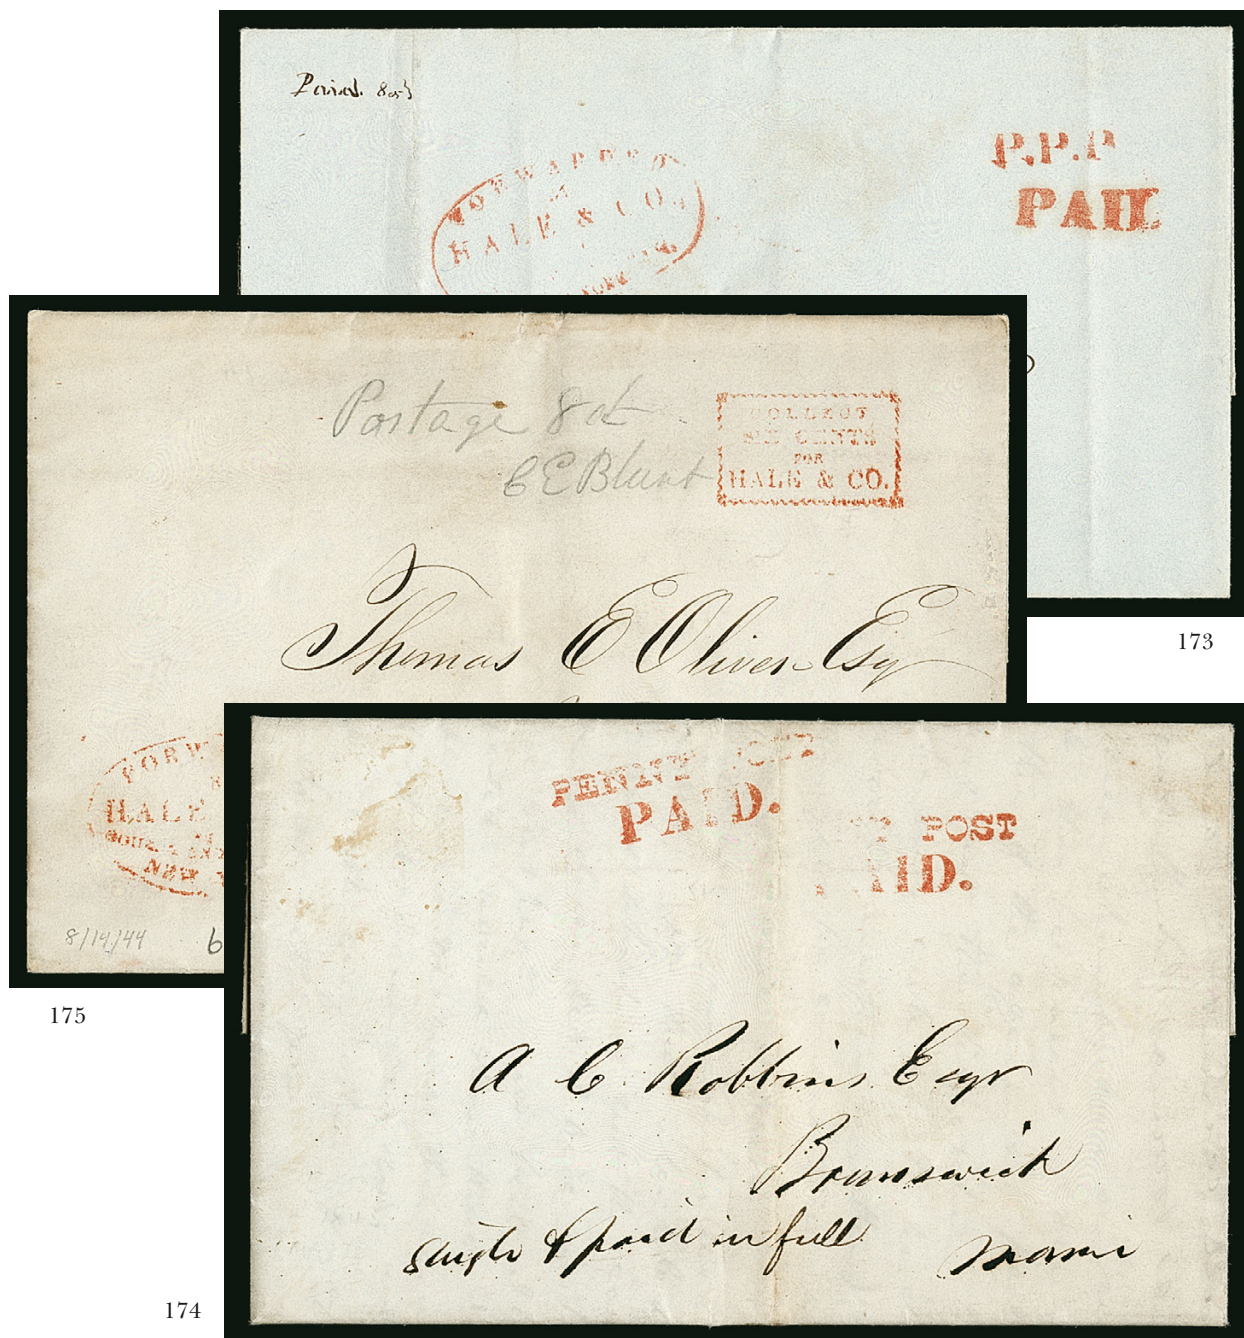 Paid. 8cts
FORWARDED
HALE & CO.
P.P.P
PAID
173
Postage 8ct
C E Blunt
COLLECT
SIX CENTS
FOR
HALE & CO.
Thomas E Oliver Esq
FORW
HALE
NEW
8/14/44
6
175
PENNY POST
PAID.
POST
AID.
A C Robbins Esqr
Brunswick
Single & paid in full
Maine
174